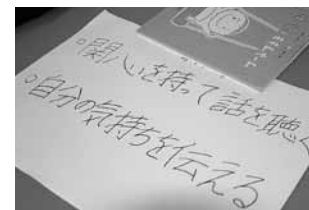 ○関心を持って話を聴く
○自分の気持ちを伝える